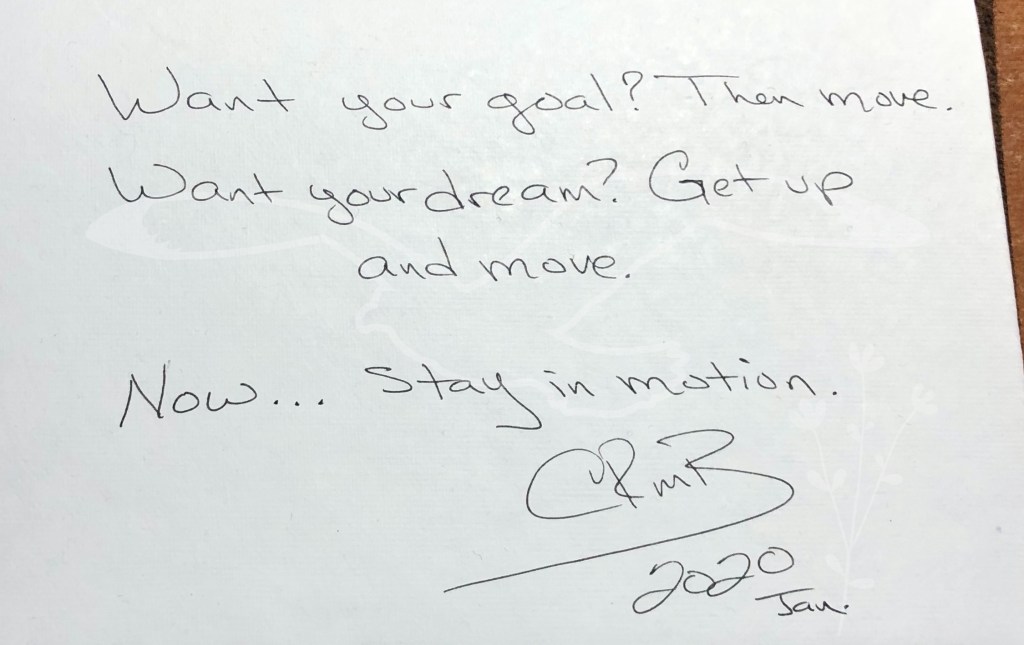 Want your goal? Then move.
Want your dream? Get up
and move.
Now... Stay in motion.
CRmB
2020
Jan.